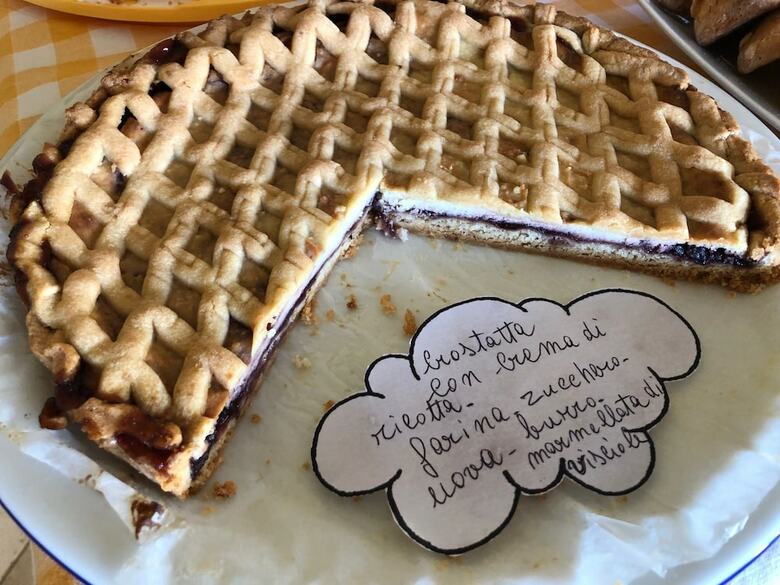 Crostatta
con crema di
ricotta-
farina zucchero-
uova-burro-
marmellata di
visciole